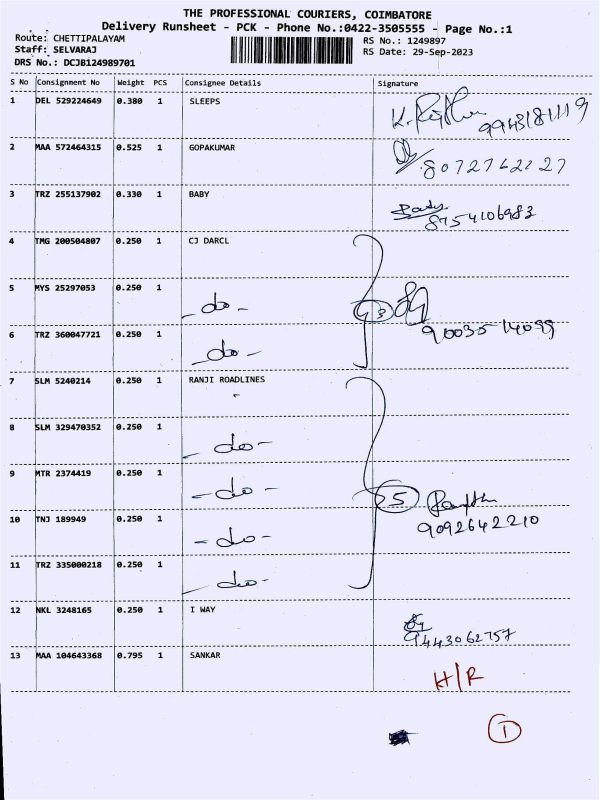 THE PROFESSIONAL COURIERS, COIMBATORE
Delivery Runsheet - PCK - Phone No.:0422-3505555 - Page No.:1
Route: CHETTIPALAYAM
Staff: SELVARAJ
DRS No.: DCJB124989701
RS No.: 1249897
RS Date: 29-Sep-2023
S No Consignment No Weight PCS Consignee Details Signature
1 DEL 529224649 0.380 1 SLEEPS
9943181119
2 MAA 572464315 0.525 1 GOPAKUMAR
8072762227
3 TRZ 255137902 0.330 1 BABY
8754106983
4 TMG 200504807 0.250 1 CJ DARCL
5 MYS 25297053 0.250 1 - do - 3
6 TRZ 360047721 0.250 1 - do - 9003514099
7 SLM 5240214 0.250 1 RANJI ROADLINES
8 SLM 329470352 0.250 1 - do -
9 MTR 2374419 0.250 1 - do - 5
10 TNJ 189949 0.250 1 - do - 9092642210
11 TRZ 335000218 0.250 1 - do -
12 NKL 3248165 0.250 1 I WAY
9443062757
13 MAA 104643368 0.795 1 SANKAR
H/R
1